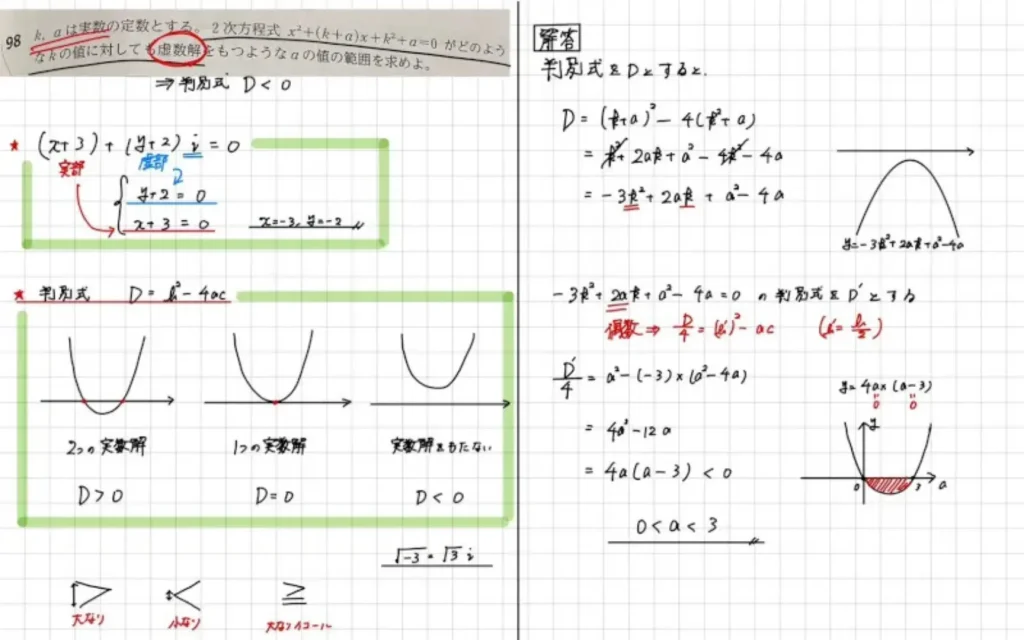 98 k, aは実数の定数とする。2次方程式 x²+(k+a)x+k²+a=0 がどのよう
なkの値に対しても虚数解をもつようなaの値の範囲を求めよ。
⇒ 判別式 D < 0
★ (x+3) + (y+2) i = 0
実部 虚部
y+2 = 0
x+3 = 0 x=-3, y=-2
★ 判別式 D = b² - 4ac
2つの実数解 1つの実数解 実数解をもたない
D > 0 D = 0 D < 0
√-3 = √3 i
> < ≧
大なり 小なり 大なりイコール
解答
判別式をDとすると.
D = (k+a)² - 4(k²+a)
= k² + 2ak + a² - 4k² - 4a
= -3k² + 2ak + a² - 4a
y=-3k²+2ak+a²-4a
-3k² + 2ak + a² - 4a = 0 の判別式をD'とする
偶数 ⇒ D/4 = (b')² - ac (b' = b/2)
D'/4 = a² - (-3) × (a² - 4a)
= 4a² - 12a
= 4a(a-3) < 0
0 < a < 3
y = 4a × (a-3)
0 0
y
0 3 a